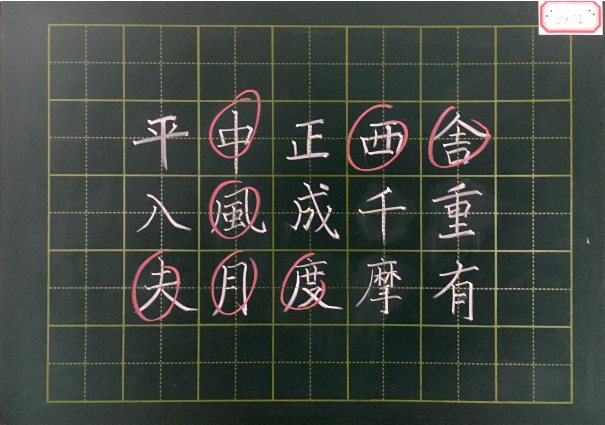 平中正西舍
八風成千重
夫月度摩有